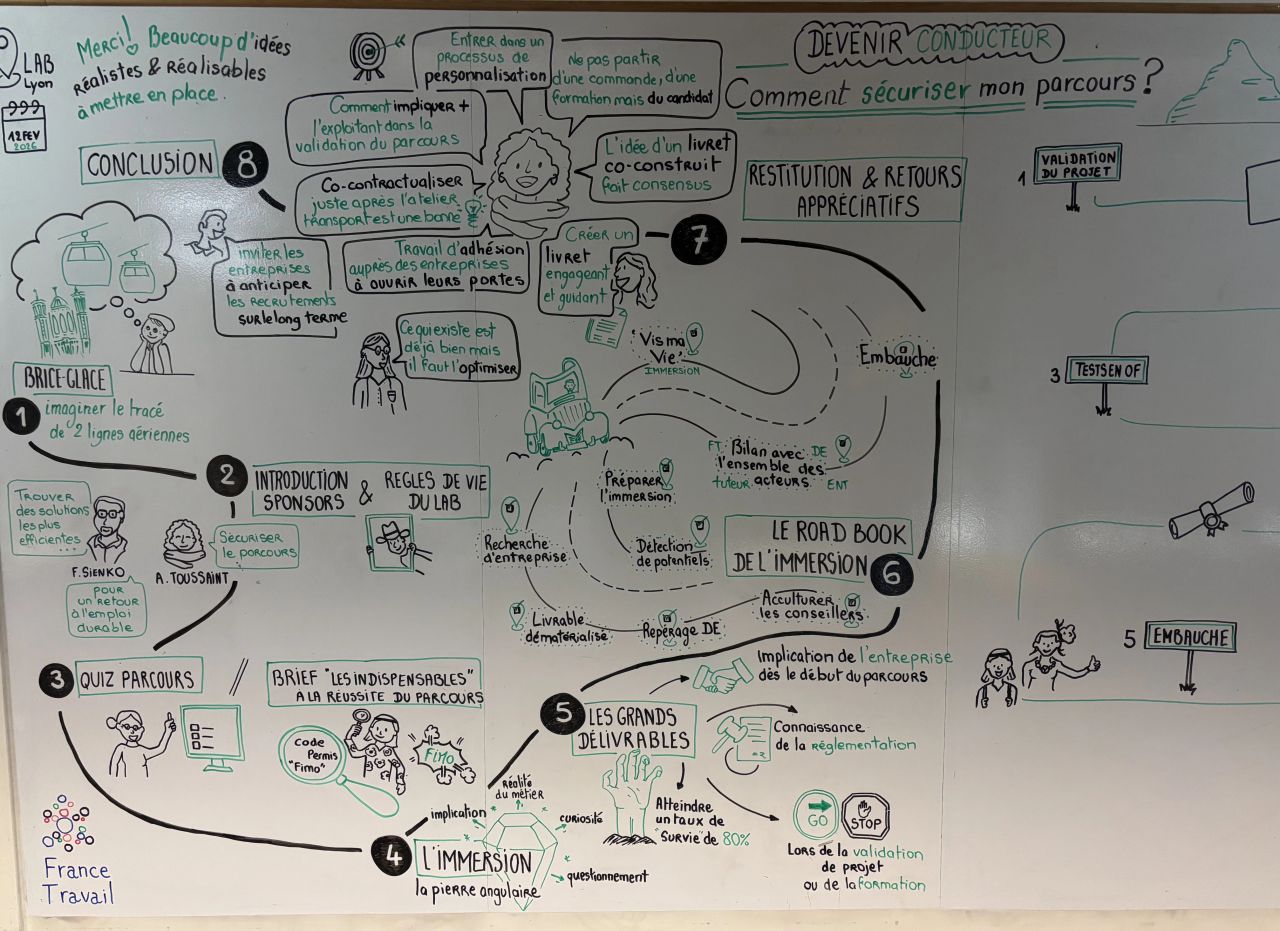 LAB
Lyon
12 FEV
2026
Merci! Beaucoup d'idées
réalistes & réalisables
à mettre en place.
DEVENIR CONDUCTEUR
Comment sécuriser mon parcours ?
BRICE-GLACE
1 imaginer le tracé
de 2 lignes aériennes
2
INTRODUCTION
SPONSORS
&
REGLES DE VIE
DU LAB
TROUVER
des solutions
les plus
efficientes...
F. SIENKO
POUR
UN RETOUR
à l'emploi
durable
A. TOUSSAINT
Sécuriser
le parcours
3 QUIZ PARCOURS
//
BRIEF "LES INDISPENSABLES"
A LA RÉUSSITE DU PARCOURS
Code
Permis
"Fimo"
FiMO
4 L'IMMERSION
la pierre angulaire
implication
Réalité
du métier
curiosité
questionnement
5 LES GRANDS
DÉLIVRABLES
Implication de l'entreprise
dès le début du parcours
Connaissance
de la réglementation
Atteindre
un taux de
"survie" de 80%
GO
STOP
Lors de la validation
de projet
ou de la formation
LE ROAD BOOK
DE L'IMMERSION 6
Acculturer
les conseillers
Repérage DE
Livrable
dématérialisé
Recherche
d'entreprise
Détection
de potentiels
Préparer
l'immersion
'Vis ma
Vie'
IMMERSION
FT Bilan avec DE
l'ensemble des
tuteur acteurs ENT
Embauche
7
RESTITUTION & RETOURS
APPRÉCIATIFS
Créer un
livret
engageant
et guidant
L'idée d'un livret
co-construit
fait consensus
Ne pas partir
d'une commande, d'une
formation mais du candidat
Entrer dans un
processus de
personnalisation
Comment impliquer +
l'exploitant dans la
validation du parcours
Co-contractualiser
juste après l'atelier
transport est une bonne
Travail d'adhésion
auprès des entreprises
à ouvrir leurs portes
inviter les
entreprises
à anticiper
les recrutements
sur le long terme
Ce qui existe est
déjà bien mais
il faut l'optimiser
CONCLUSION 8
1 VALIDATION
DU PROJET
3 TESTS EN OF
5 EMBAUCHE
France
Travail